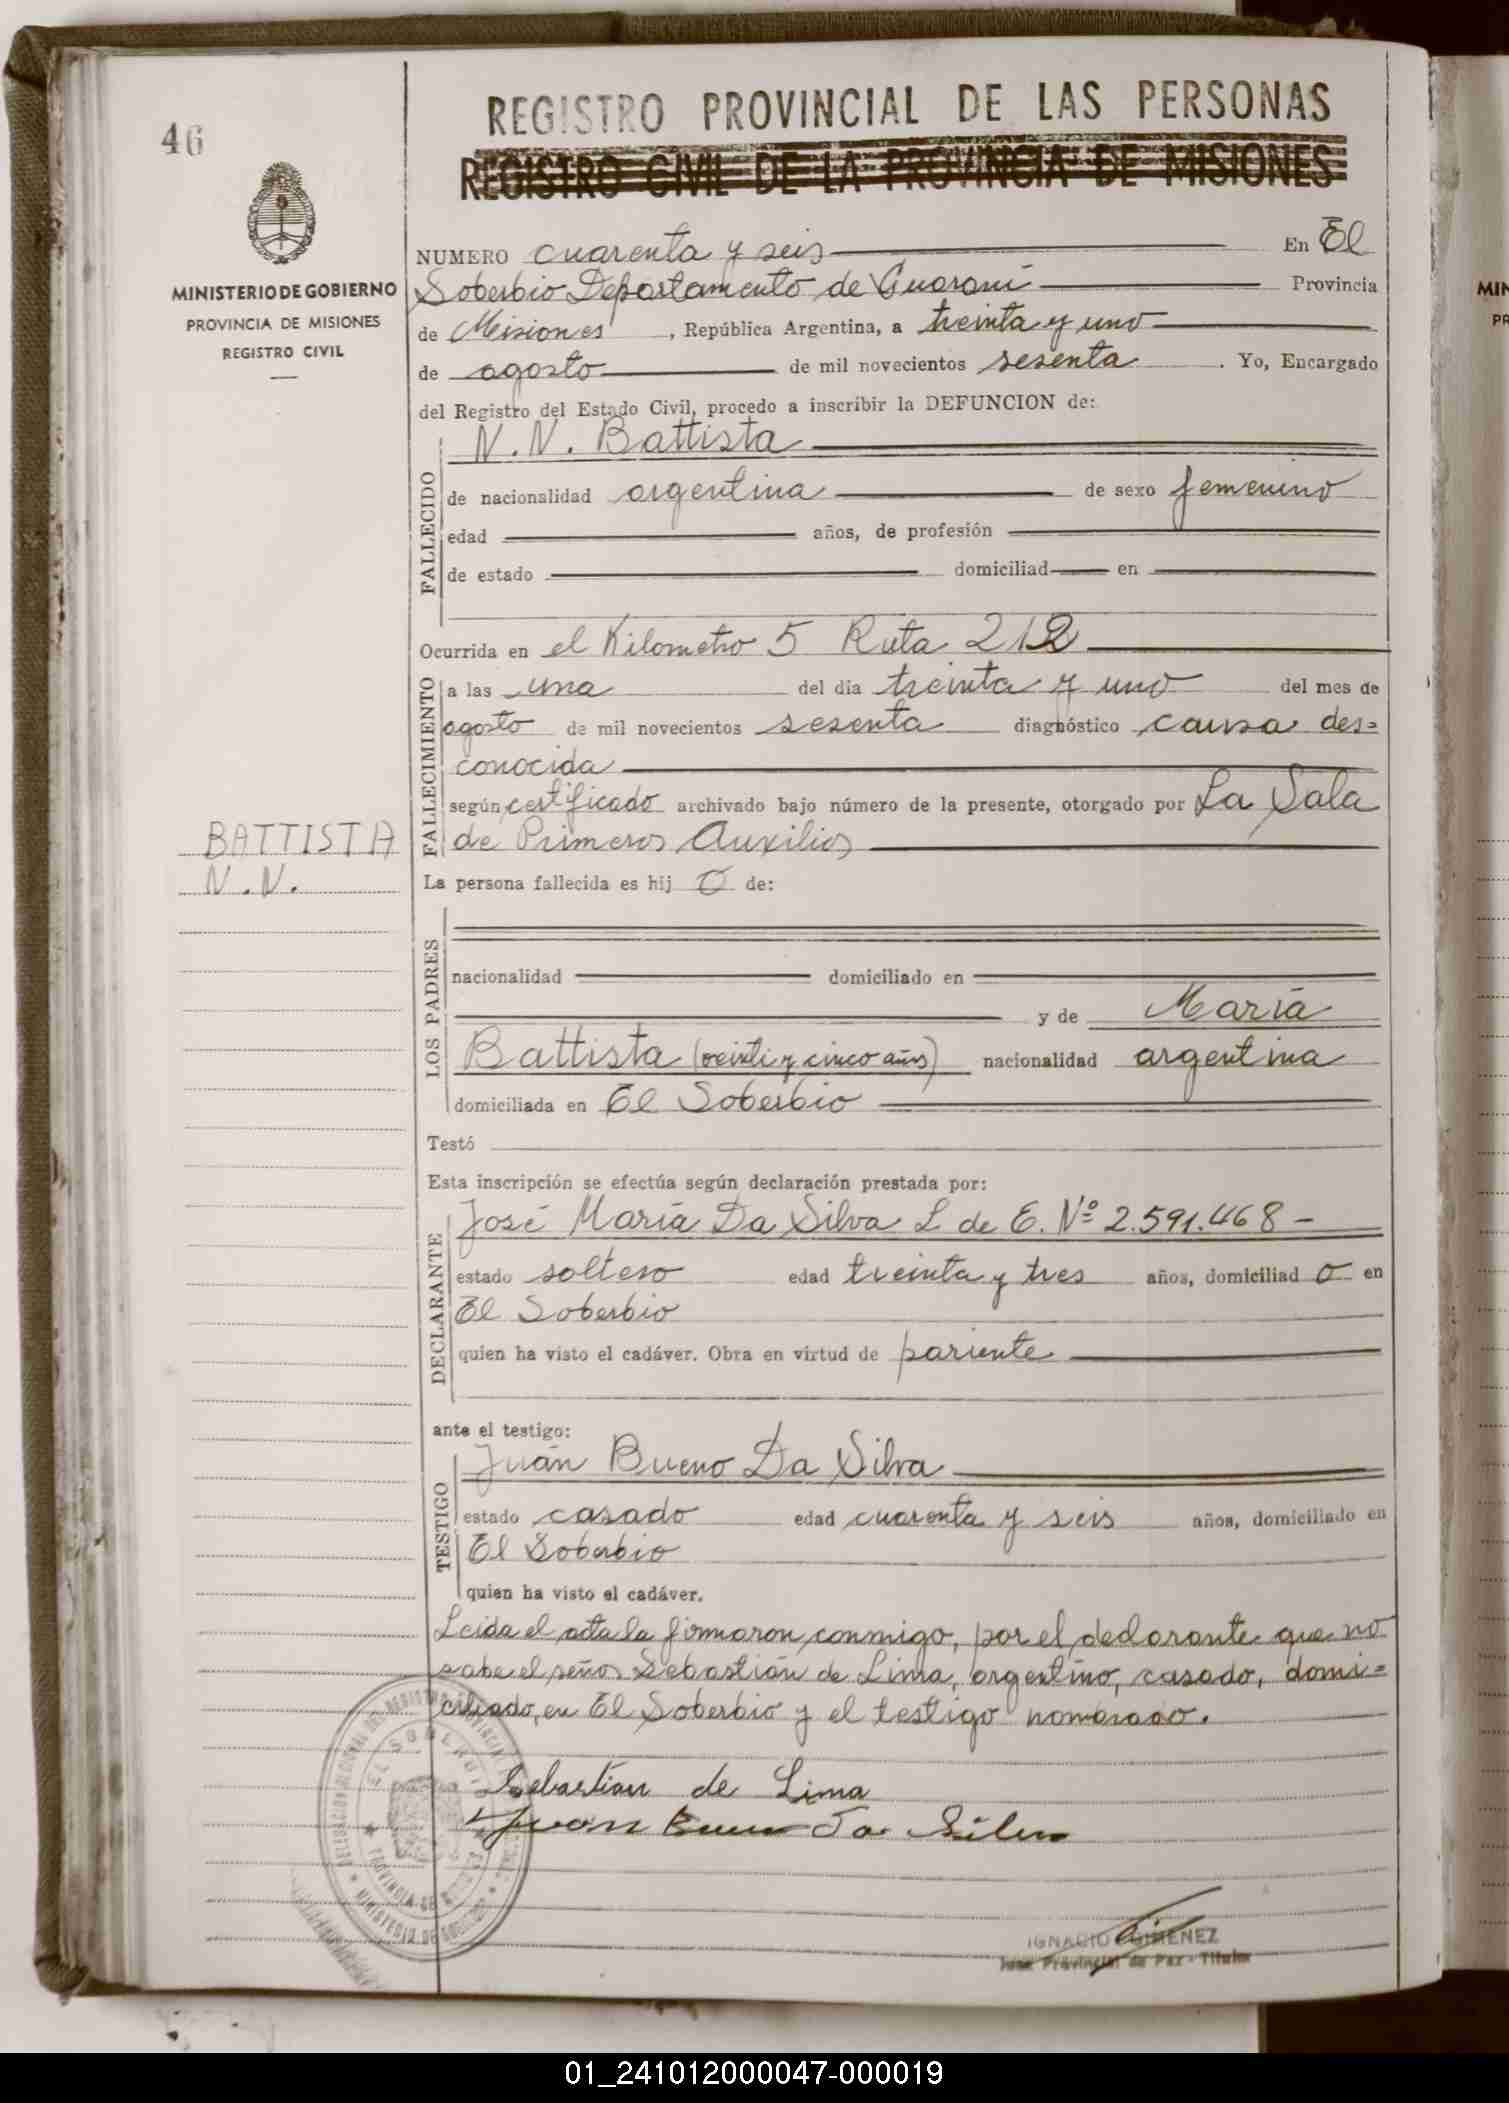 46
REGISTRO PROVINCIAL DE LAS PERSONAS
REGISTRO CIVIL DE LA PROVINCIA DE MISIONES
MINISTERIO DE GOBIERNO
PROVINCIA DE MISIONES
REGISTRO CIVIL
NUMERO cuarenta y seis En El
Soberbio Departamento de Guaraní Provincia
de Misiones, República Argentina, a treinta y uno
de agosto de mil novecientos sesenta. Yo, Encargado
del Registro del Estado Civil, procedo a inscribir la DEFUNCION de:
FALLECIDO
N. N. Battista
de nacionalidad argentina de sexo femenino
edad años, de profesión
de estado domiciliad en
Ocurrida en el Kilometro 5 Ruta 212
FALLECIMIENTO
a las una del día treinta y uno del mes de
agosto de mil novecientos sesenta diagnóstico causa des=
conocida
según certificado archivado bajo número de la presente, otorgado por La Sala
de Primeros Auxilios
BATTISTA
N.N.
La persona fallecida es hij o de:
LOS PADRES
nacionalidad domiciliado en
y de María
Battista (veinti y cinco años) nacionalidad argentina
domiciliada en El Soberbio
Testó
Esta inscripción se efectúa según declaración prestada por:
DECLARANTE
José María Da Silva L de E. Nº 2.591.468 -
estado soltero edad treinta y tres años, domiciliad o en
El Soberbio
quien ha visto el cadáver. Obra en virtud de pariente
ante el testigo:
TESTIGO
Juán Bueno Da Silva
estado casado edad cuarenta y seis años, domiciliado en
El Soberbio
quien ha visto el cadáver.
Leida el acta la firmaron conmigo, por el declarante que no
sabe el señor Sebastián de Lima, argentino, casado, domi=
ciliado, en El Soberbio y el testigo nombrado.
EL SOBERBIO
PROVINCIA DE
MINISTERIO DE GOBIERNO
Sebastian de Lima
Juan Bueno Da Silva
IGNACIO GIMENEZ
Juez Provincial de Paz - Titular
MIN
PR
01_241012000047-000019